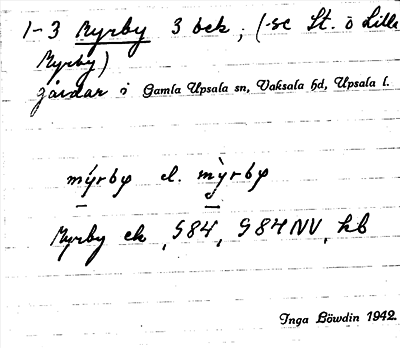 1-3 Myrby 3 bek; (se St. o Lilla
Myrby)
gårdar i Gamla Upsala sn, Vaksala hd, Upsala l.
mýrby el. mỳrby
Myrby ek, 984, 984 NV, hb
Inga Löwdin 1942.